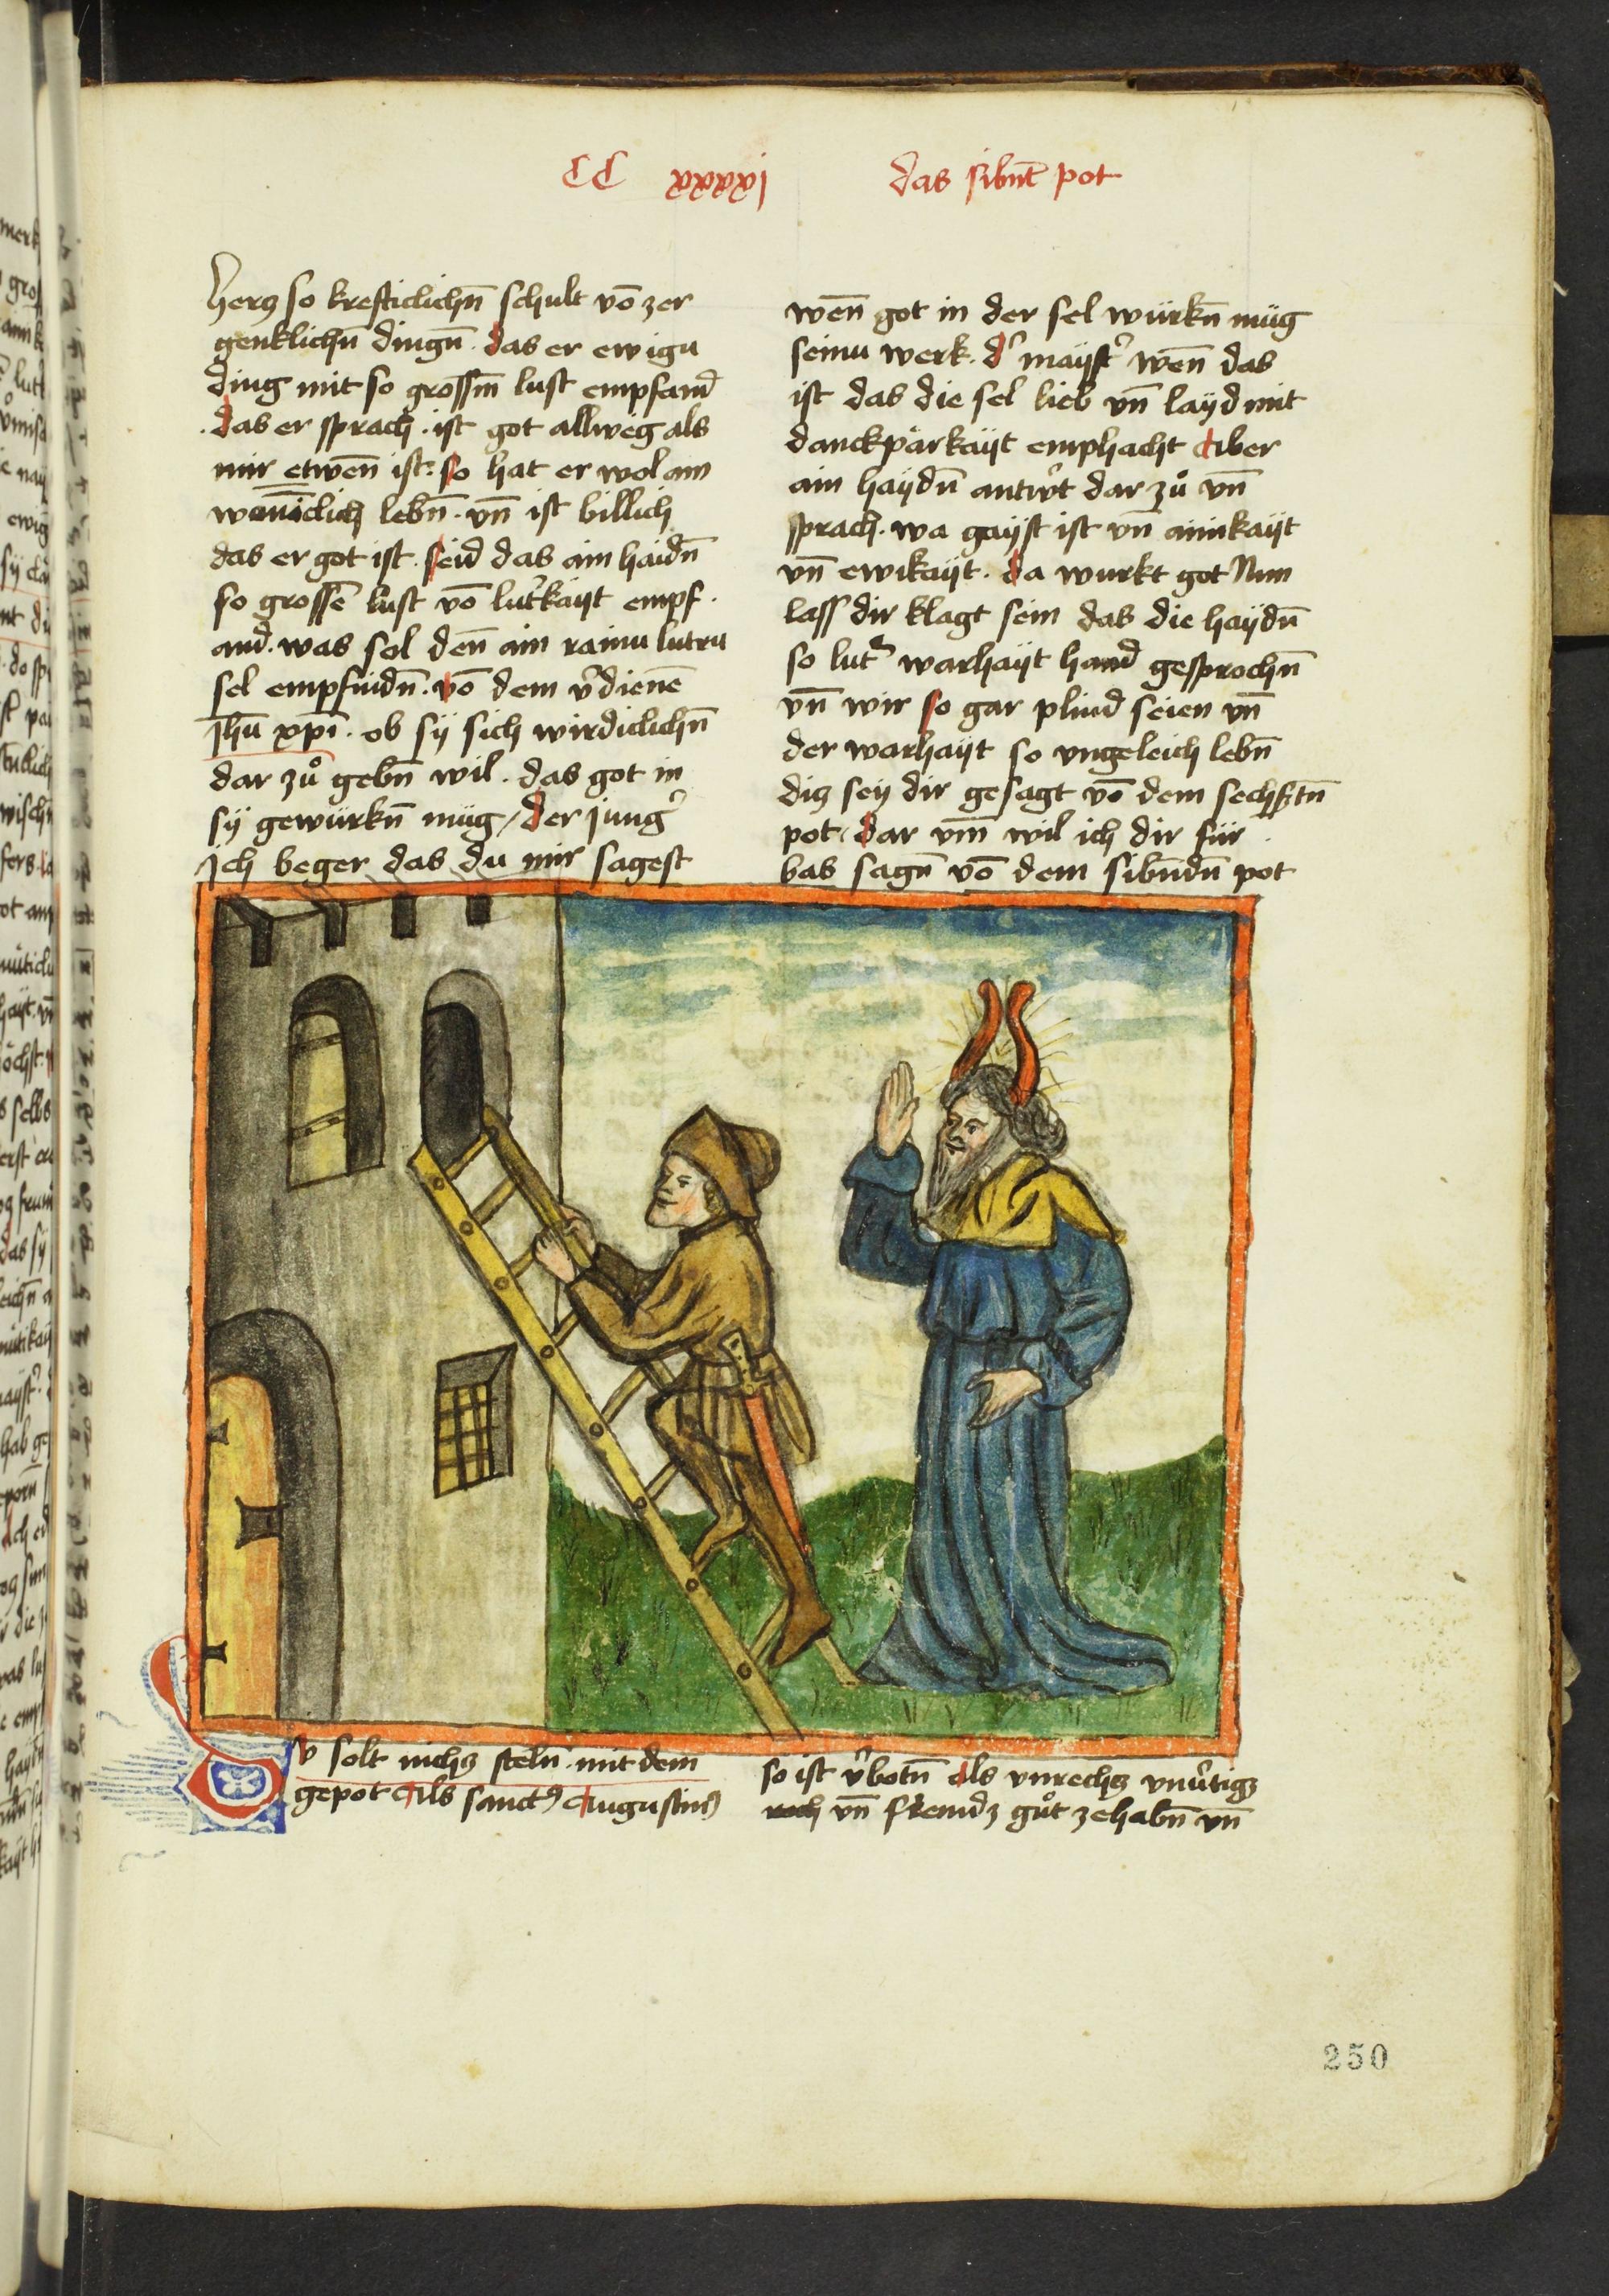 CC xxxxxj das sibnt̄ pot
herz so krefticlichn̄ schult vō zer
genklichn̄ dingn̄. das er ewigu
ding mit so grossm̄ lust empfand
.das er sprach. ist got allweg als
mir etwen̄ ist: so hat er wol ain
wun̄iclich lebn̄. vn̄ ist billich
das er got ist. seid das ain haidn̄
so grossē lust vō lut'kayt empf.
and. was sol den̄ ain rainu lutru
sel empfindn̄. vō dem v'dienē
Jhū xp̄i. ob sÿ sich wirdiclichn̄
dar zuͦ gebn̄ wil. das got in
sÿ gewürkn̄ müg / der jung'
Ich beger das du mir sagest
wen̄ got in der sel würkn̄ müg
seinu werk. d' mayst' wen̄ das
ist das die sel lieb vn̄ layd mit
danckpärkayt emphacht Aber
ain haydn̄ antw't dar zuͦ vn̄
sprach. wa gayst ist vn̄ ainikayt
vn̄ ewikayt. da wurkt got Nun
lass dir klagt sein das die haydn̄
so lut' warhayt hand gesprochn̄
vn̄ wir so gar plind seien vn̄
der warhayt so vngeleich lebn̄
diz sey dir gesagt vō dem sechstn̄
pot / dar vm̄ wil ich dir für
bas sagn̄ vō dem sibn̄dn̄ pot
Dv solt nichz steln̄. mit dem
gepot Als sanct9 Augustin9
so ist v'botn̄ als vnrechtz vnv'tigz
vn̄ fremdz guͦt zehabn̄ vn̄
250